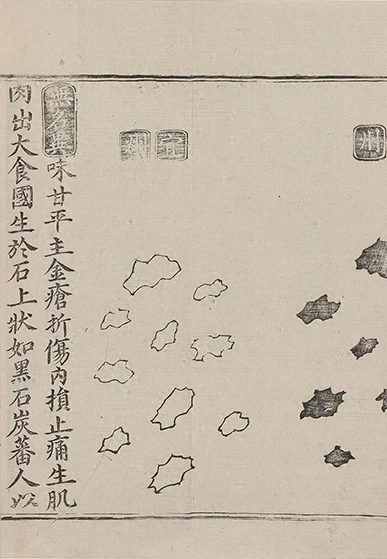 州
宜州
無名異味甘平主金瘡折傷内損止痛生肌
肉出大食國生於石上狀如黑石炭蕃人以